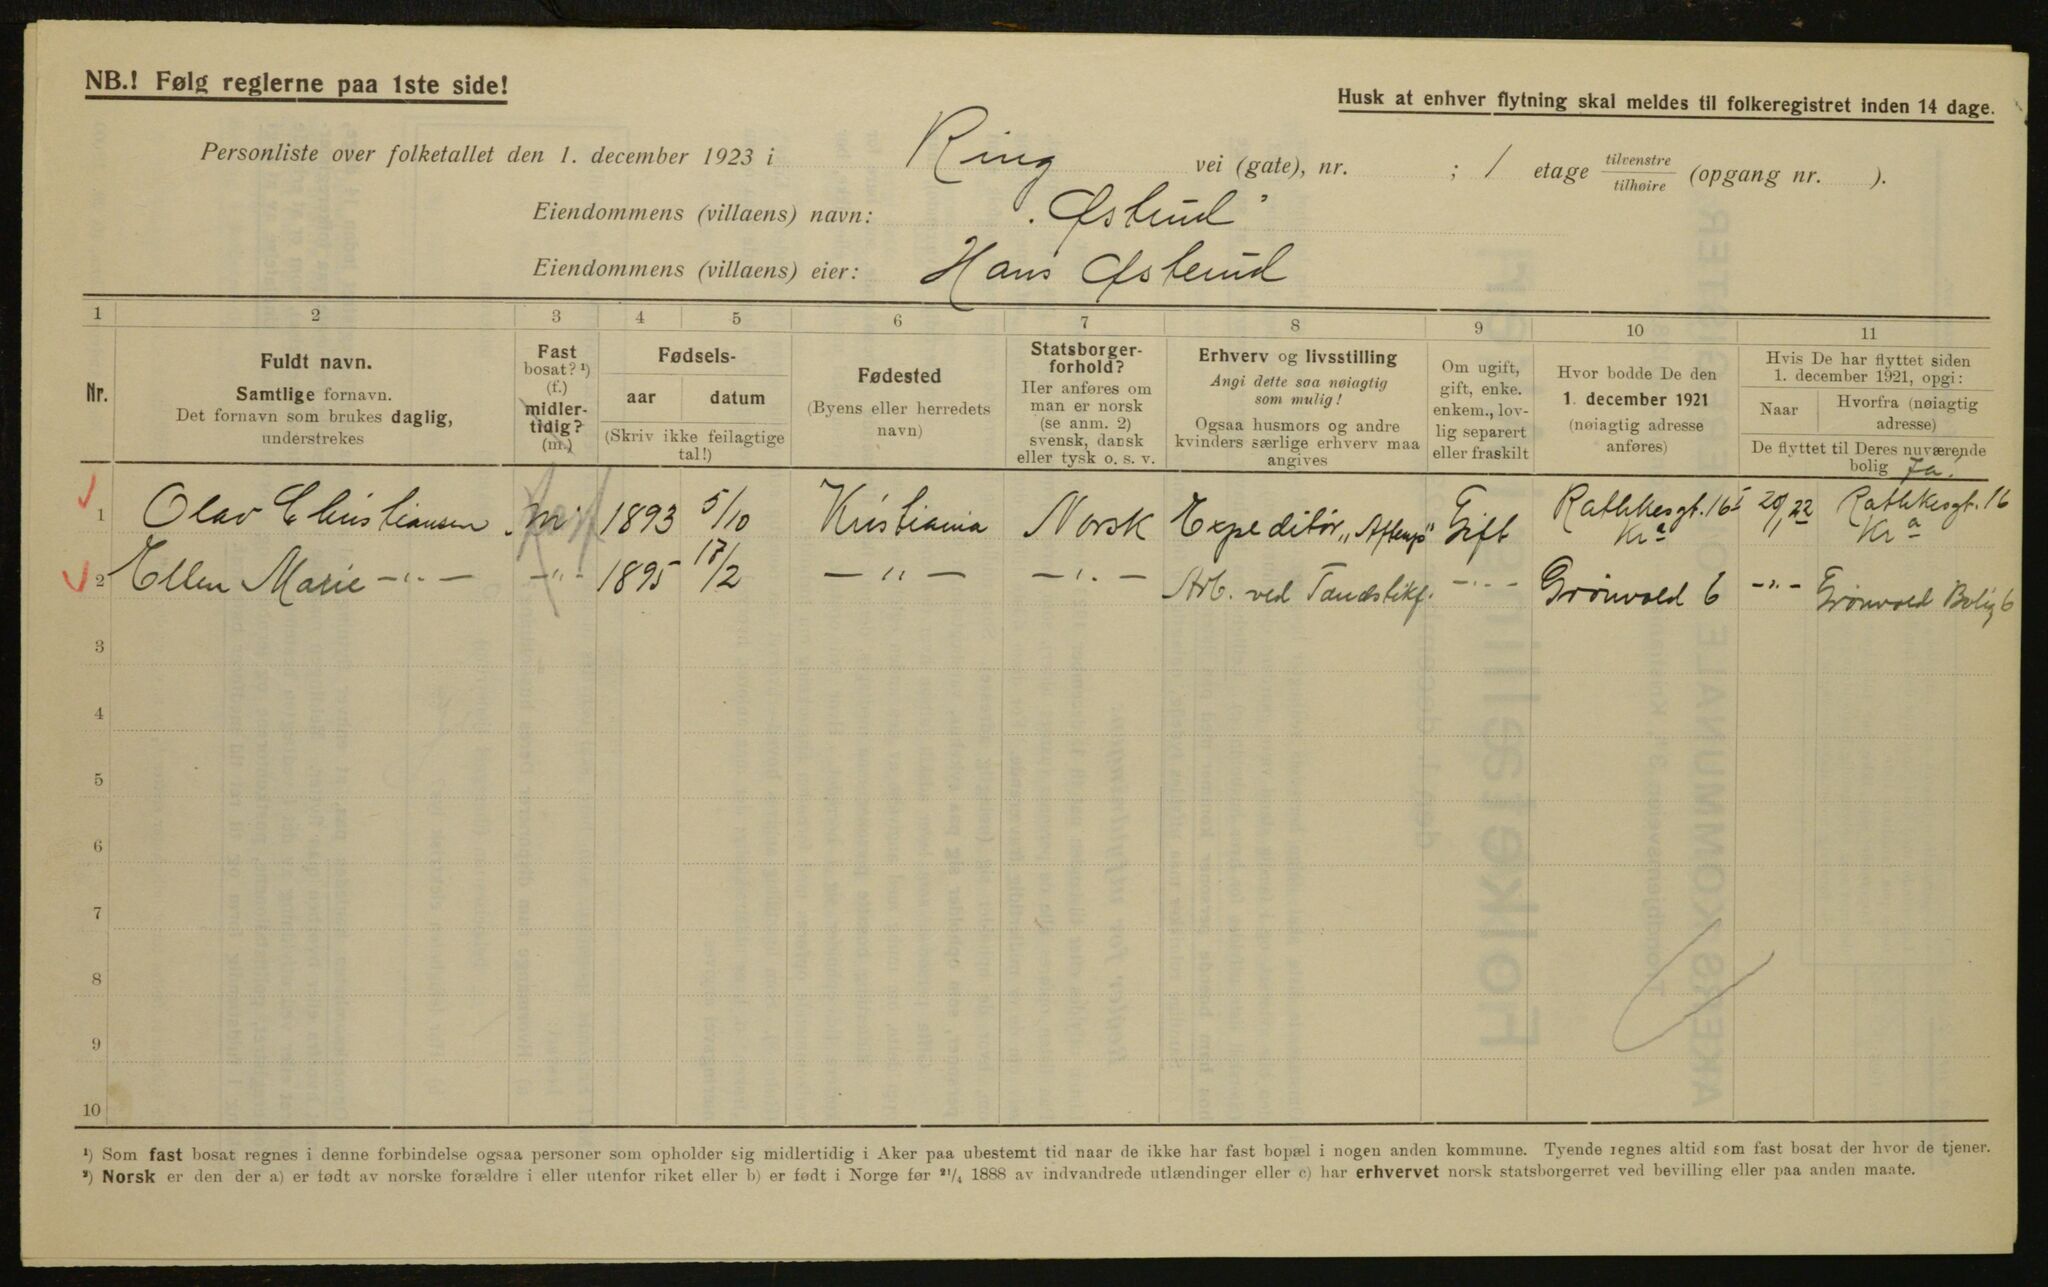 NB.! Følg reglerne paa 1ste side!
Husk at enhver flytning skal meldes til folkeregistret inden 14 dage.
Personliste over folketallet den 1. december 1923 i Ring vei (gate), nr. ; 1 etage tilvenstre/tilhøire (opgang nr. ).
Eiendommens (villaens) navn: „Østerud"
Eiendommens (villaens) eier: Hans Østerud
1 2 3 4 5 6 7 8 9 10 11
Nr.
Fuldt navn.
Samtlige fornavn.
Det fornavn som brukes daglig,
understrekes
Fast
bosat? ¹)
(f.)
midler-
tidig?
(m.)
Fødsels-
aar datum
(Skriv ikke feilagtige
tal!)
Fødested
(Byens eller herredets
navn)
Statsborger-
forhold?
Her anføres om
man er norsk
(se anm. 2)
svensk, dansk
eller tysk o. s. v.
Erhverv og livsstilling
Angi dette saa nøiagtig
som mulig!
Ogsaa husmors og andre
kvinders særlige erhverv maa
angives
Om ugift,
gift, enke.
enkem., lov-
lig separert
eller fraskilt
Hvor bodde De den
1. december 1921
(nøiagtig adresse
anføres)
Hvis De har flyttet siden
1. december 1921, opgi:
Naar Hvorfra (nøiagtig
adresse)
De flyttet til Deres nuværende
bolig Ja!
1 Olav Christiansen m 1893 5/10 Kristiania Norsk Expeditør „Aftenp" Gift Rathkesgt. 16 I Kr a 20/1 22 Rathkesgt. 16 Kr a
2 Ellen Marie —"— —"— 1895 17/2 —"— —"— Arb. ved Tandstikf. —"— Grønvold 6 —"— Grønvold Bolig 6
3
4
5
6
7
8
9
10
¹) Som fast bosat regnes i denne forbindelse ogsaa personer som opholder sig midlertidig i Aker paa ubestemt tid naar de ikke har fast bopæl i nogen anden kommune. Tyende regnes altid som fast bosat der hvor de tjener.
²) Norsk er den der a) er født av norske forældre i eller utenfor riket eller b) er født i Norge før ²¹/₄ 1888 av indvandrede utlændinger eller c) har erhvervet norsk statsborgerret ved bevilling eller paa anden maate.